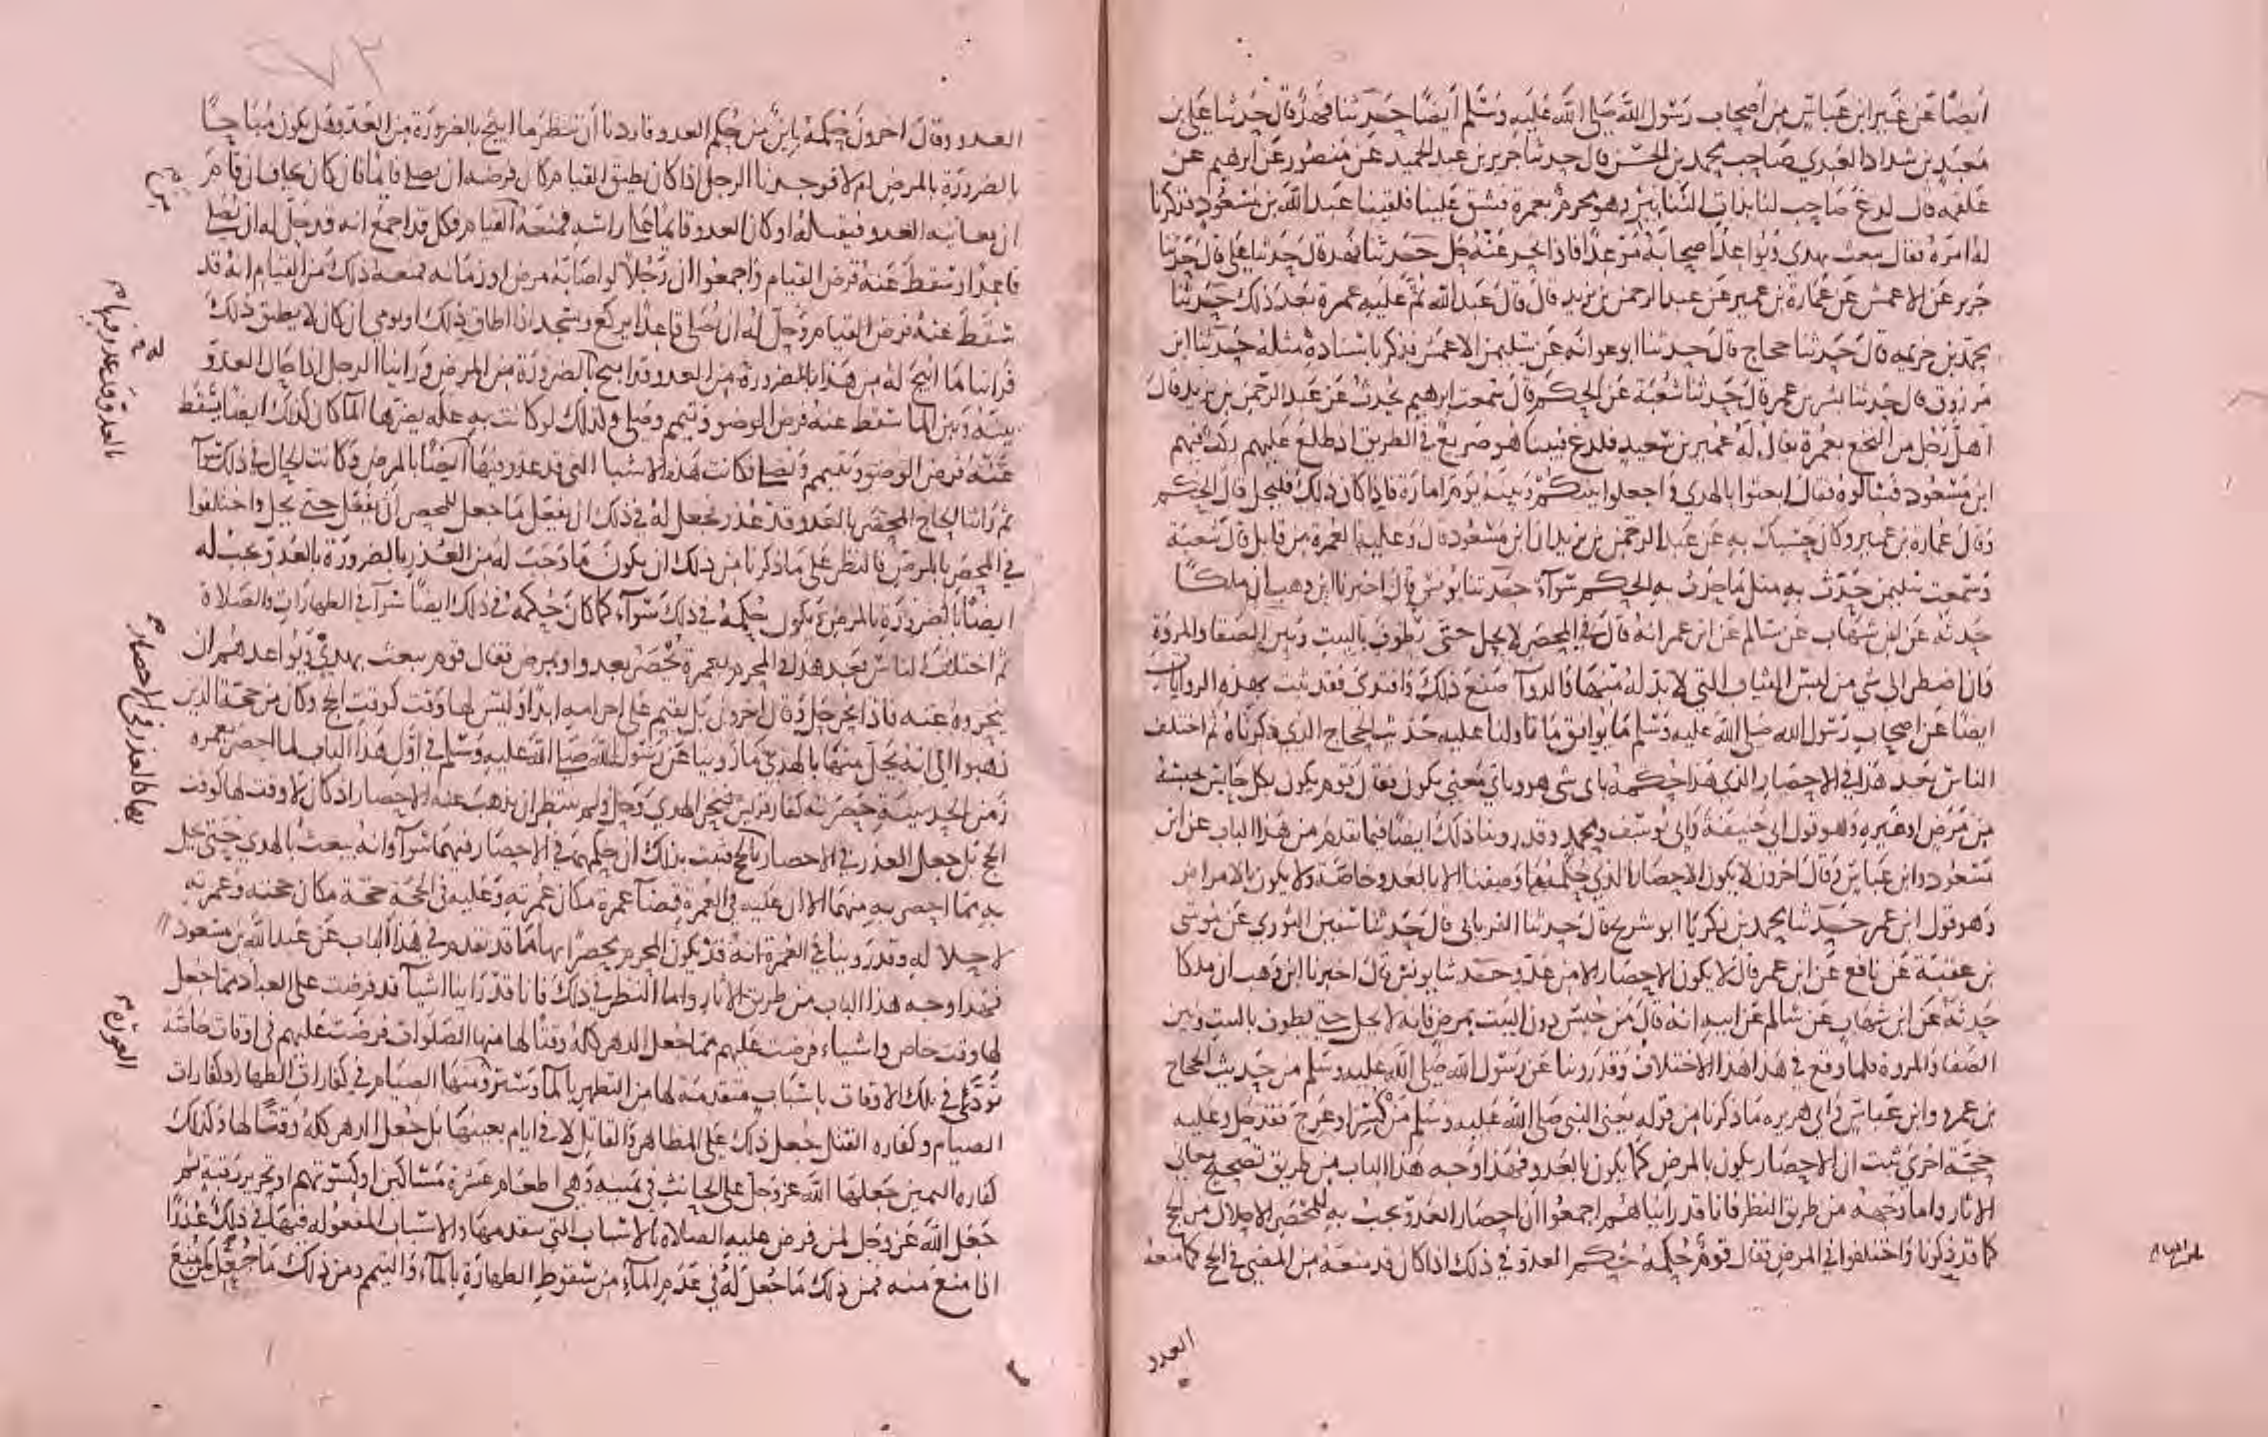 ايضًا عَن غَير ابن عَباسٍ مِن اصحاب رَسُول الله صَلى الله عَليه وسَلم ايضًا حَدثنا فهد قال حَدثنا عَلي بن
مَعبَدِ بن شداد العَبدي صَاحِب محمد بن الحسَن قال حدثنا جرير بن عبد الحميد عن مَنصُور عَن ابرهيم عن
علقمه قال لدغ صَاحِب لنا بذات التنانير وهو محرم بعمرة فشق علينا فلقينا عَبد الله بن مَسْعُودٍ فذكرنا
له امرَهُ فقال يبعث بهدي ويُواعدُ اصحابَهُ مَوعدًا فاذا نحر عنهُ حل حَدثنا فهد قال حَدثنا علي قال حَدثنا
جرير عَن الاعمش عَن عمَارة بن عمير عَن عبد الرحمن بن يزيد قال قال عَبد الله ثم عليه عمرة بَعدَ ذلك حَدثنا
محمد بن خزيمه قال حَدثنا حجاج قال حَدثنا ابو عوانه عَن سُليمن الاعمش فذكر باسنَادهِ مثلهُ حَدثنا ابن
مَرزوق قال حَدثنا بشر بن عمرَ قال حَدثنا شُعبَة عَن الحكم قال سَمعت ابرهيم يحدث عَن عَبد الرحمن بن يزيد قال
اهلَّ رَجُل من النخع بعُمرة يقال لهُ عُمير بن سَعيدٍ فلدغ فبينا هو صَريع في الطريق اذ طلع عَليهم ركب فيهم
ابن مَسْعُود فسَالوهُ فقال ابعثوا بالهدي واجعلوا بينكم وبينه يَومَ امارَة فاذا كان ذلكَ فليحل قال الحكم
وقال عمارة بن عمير وكان حَسْبك بهِ عَن عَبد الرحمن بن يزيد ان ابن مَسْعُود قال وعليهِ العُمرة من قابل قال شعبَة
وسَمعت سُليمن حَدَّث بهِ مثل ما حدث به الحكم سَوآءً حَدثنا يونس قال اخبرنا ابن وهب ان ملكًا
حَدثهُ عَن ابن شهَاب عن سَالم عَن ابن عمر انهُ قال في المحصَر لا يحل حتى يَطُوفَ بالبيتِ وبَين الصَفا والمروةِ
فان اضطر الى شيٍ من لبس الثياب التي لابد لهُ منها والدوآ صَنعَ ذلك وافتدى فقد ثبت بهذه الروايات
ايضًا عَن اصحاب رَسُول الله صَلى الله عليه وسَلم مَا يُوافق مَا تاولنا عليه حَديث الحجاج الذي ذكرناه ثم اختلف
الناسُ بَعد هَذا في الاحصَارِ الذي هَذا حُكمهُ باي شي هو وباي مَعنى يكون فقال قَوم يكون بكل حَابس حبسَهُ
مِن مَرَضٍ او غيرهِ وَهو قول ابي حَنيفة وابي يُوسُف ومحمد وقد روينا ذلك ايضًا فيما تقدم من هَذا الباب عَن ابن
مَسْعُود وابن عَباسٍ وقال اخرونَ لا يكون الاحصَار الذي حُكمه مَا وَصفنا الا بالعَدو خاصَة ولا يكون بالامراض
وَهو قول ابن عمر حَدثنا محمد بن زكريا ابو شريح قال حَدثنا الفريابي قال حَدثنا سُفين الثوري عَن مُوسَى
بن عقبَة عَن نافع عَن ابن عمر قال لا يكون الاحصَار الا من عَدو حَدثنا يونس قال اخبرنا ابن وَهب ان ملكا
حَدثهُ عَن ابن شهَاب عَن سَالم عَن ابيهِ انه قال مَن حُبسَ دون البيت بمرض فانه لا يحل حتى يطوف بالبيت وبين
الصَفا والمروة فلما وقع في هَذا هذا الاختلاف وَقد روينا عَن رَسُول الله صَلى الله عَليه وسَلم من حَديث الحجاج
بن عمرو وابن عَباسٍ وابي هريره مَا ذكرنا من قوله يعَنى النبي صَلى الله عَليه وسَلم مَنْ كُسِرَ او عَرجَ فقد حَل وعَليه
حجَّة اخرَى ثبت ان الاحصَار يكون بالمرض كما يكون بالعَدو فهَذا وَجه هَذا الباب من طريق تصحيح معاني
الاثار واما وَجههُ من طريق النظر فانا قد راينا هُم اجمعُوا ان احصَارَ العَدوّ يجبُ بهِ للمحصَر الاحلال من الحج
كما قد ذكرنا واختلفوا في المرض فقال قوم حُكمهُ حُكم العدو في ذلك اذا كان قد منعَهُ من المضي في الحج كما منعهُ
العدو
العدو وقال اخرون حكمهُ باين من حُكم العدو فاردنا ان ننظر ما ابيح بالضرورَة من العَدو هَل يكون مُبَاحًا
بالضرورَة بالمرض ام لا فوجدنا الرجل اذا كان يطيق القيام كان فرضه ان يصلي قايمًا فان كان يخاف ان قامَ
ان يعاينه العَدو فيقتله او كان العدو قايمًا على راسه فمنعَهُ القيام فكل قد اجمع انه قد حَل له ان يُصَلي
قاعِدًا وسَقط عَنهُ فرض القيام واجمعوا ان رَجُلًا لو اصَابهُ مرض او زمَانه فمنعه ذلك من القيام انهُ قد
سَقط عنهُ فرض القيام وحَل لهُ ان يُصَلي قاعدًا يركع ويسجد اذا اطاق ذلك او يومي ان كان لا يطيق ذلك
فراينا مَا ابيح لهُ من هَذا بالضرورة من العدو قد ابيح بالضرورَة من المرض وراينا الرجل اذا حَال العدو
بينه وبين المآ سَقط عنه فرض الوضو وتيمم وصَلى وكذلك لو كانت بهِ علة يضرّها المآ كان كذلك ايضًا يسقط
عَنهُ فرض الوضو وتيمم ويصَلي فكانت هَذه الاشيا التي قد عذر فيها ايضًا بالمرض وكانت الحال في ذلك سَوآ
ثم راينا الحاج المحصَر بالعَدو قد عُذر فجعل لهُ في ذلك ان يفعَل مَا جعل للمحصر ان يفعَل حتى يحل واختلفوا
في المحصَر بالمرض فالنظر على ما ذكرنا من ذلك ان يكون مَا وَجَبَ لهُ من العُذر بالضرورَة بالعَدو يجبُ له
ايضًا بالضرورَةِ بالمرض ويكون حُكمهُ في ذلك سَوآء كما كان حُكمه في ذلك ايضًا سوآ في الطهارَات والصَلاة
ثم اختلفَ الناسُ بَعد هَذا في المحرم بعمرة يُحصَر بعدو او بمرض فقال قوم يبعث بهدي ويُواعدهُم ان
ينحروهُ عنه فاذا نحر حل وقال اخرون بَل يقيم على احرامِه ابدًا وليس لها وَقت كوقتِ الحج وكان من حجَّة الذين
ذهبوا الى انهُ يحل منهَا بالهدي مَا روينا عَن رَسُول الله صلى الله عَليه وسَلم في اوَّل هَذا الباب لما احصرَ بعمره
زمن الحديبيَّة حصَرتهُ كفار قريش فنحر الهدي وحَل ولم ينتظر ان يذهبَ عنهُ الاحصَار اذ كان لا وقت لها كوقت
الحج بل جعل العذر في الاحصار بالحج فثبت بذلك ان حكمهمَا في الاحصَار فيهما سَوآ وانه يبعثُ بالهدي حَتى يحل
بهِ ممّا احصر بهِ منهمَا الا ان عَليه في العُمرة قضآ عمرة مكان عُمرتهِ وعَليه في الحجة حجة مكان حجته وعُمرة
لاحلاله وقد روينا في العُمرة انهُ قد يكون المحرم محصَرًا بها مَا قد تقدم في هَذا الباب عَن عَبد الله بن مسعود
فهذا وجه هذا الباب من طريق الاثار واما النظر في ذلك فانا قد راينا اشيآ قد فرضت على العباد مما جعل
لها وقت خاص واشياء فرضت عَليهم ممّا جُعل الدهر كلهُ وقتًا لها منها الصَلوات فرضَت عَليهم في اوقات خاصَّة
تُودَّى في تلك الاوقات باسبَابٍ متقدمَة لها من التطهر بالمآ وسَترِ ومنهَا الصِيَام في كفارات الظهَار وكفارات
الصيام وكفاره القتل جُعل ذلك عَلى المظاهر والقاتل لا في ايام بعينهَا بَل جُعل الدهر كلهُ وقتًا لها وكذلك
كفاره اليمين جَعلهَا الله عز وجل على الحانث في يمينه وهي اطعَام عَشَرة مسَاكين او كسْوتهم او تحرير رَقبةٍ ثم
جَعَل الله عَز وجَل لمن فرض عليهِ الصلاة بالاسبَاب التي تتقدمهَا والاسبَاب المفعوله فيهَا في ذلك عُذرًا
اذا منعَ منه فمن ذلك مَا جُعل لهُ في عَدَم المآءِ من سُقوطِ الطهارَةِ بالمآءِ والتيمم ومن ذلك مَا جُعِلَ لمن مُنعَ
بالعدو قد عذر فيها
بها كالعذر في الاحصار
العورة